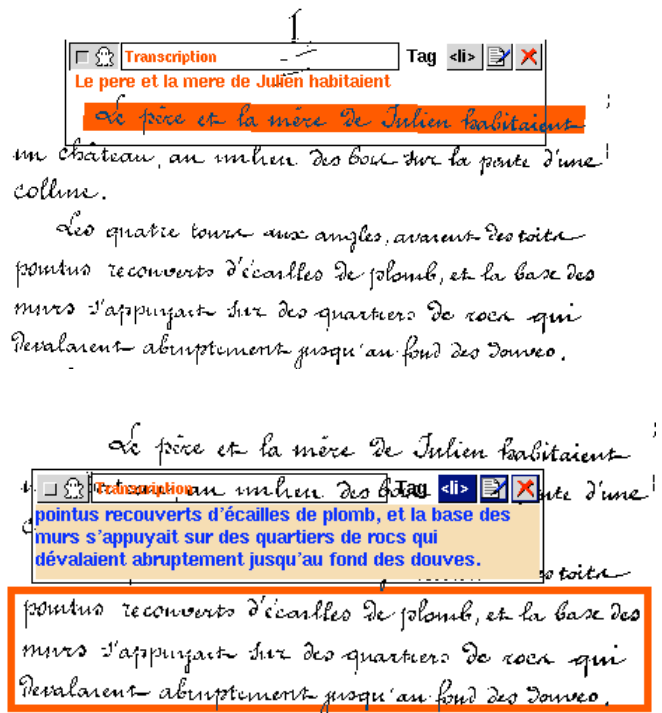 1
Transcription Tag <li>
Le pere et la mere de Julien habitaient
Le père et la mère de Julien habitaient
un château, au milieu des bois sur la pente d'une
colline.
Les quatre tours aux angles, avaient des toits
pointus recouverts d'écailles de plomb, et la base des
murs s'appuyait sur des quartiers de rocs qui
dévalaient abruptement jusqu'au fond des douves.
Le père et la mère de Julien habitaient
Transcription Tag <li>
au milieu des pente d'une
pointus recouverts d'écailles de plomb, et la base des
murs s'appuyait sur des quartiers de rocs qui
dévalaient abruptement jusqu'au fond des douves.
toits
pointus recouverts d'écailles de plomb, et la base des
murs s'appuyait sur des quartiers de rocs qui
dévalaient abruptement jusqu'au fond des douves.